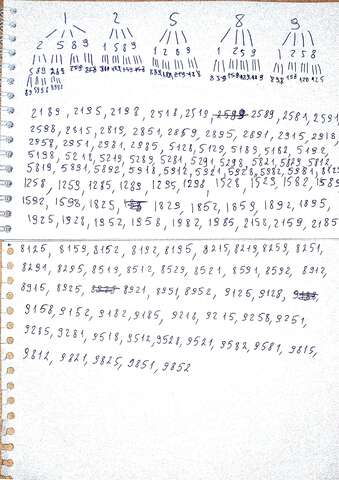 1 2 5 8 9
2 5 8 9 1 5 8 9 1 2 8 9 1 2 5 9 1 2 5 8
2189, 2195, 2198, 2518, 2519, 2589, 2581, 2591,
2598, 2815, 2819, 2851, 2859, 2895, 2891, 2915, 2918,
2958, 2951, 2981, 2985, 5128, 5129, 5189, 5182, 5192,
5198, 5218, 5219, 5289, 5281, 5291, 5298, 5821, 5829, 5812,
5819, 5891, 5892, 5918, 5912, 5921, 5928, 5982, 5981, 8125
1258, 1259, 1285, 1289, 1295, 1298, 1528, 1529, 1582, 1589
1592, 1598, 1825, 1829, 1852, 1859, 1892, 1895,
1925, 1928, 1952, 1958, 1982, 1985, 2158, 2159, 2185
8125, 8159, 8152, 8192, 8195, 8215, 8219, 8259, 8251,
8291, 8295, 8519, 8512, 8529, 8521, 8591, 8592, 8912,
8915, 8925, 8921, 8951, 8952, 9125, 9128,
9158, 9152, 9182, 9185, 9218, 9215, 9258, 9251,
9285, 9281, 9518, 9512, 9528, 9521, 9582, 9581, 9815,
9812, 9821, 9825, 9851, 9852